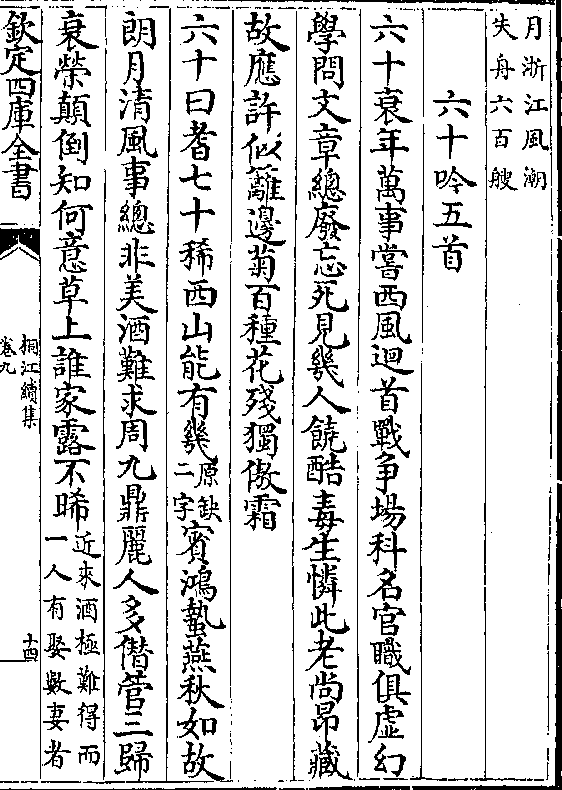 月浙江風潮
失舟六百艘
六十吟五首
六十衰年萬事嘗西風迴首戰争場科名官職俱虚幻
學問文章總廢忘死見幾人饒酷毒生憐此老尚昂藏
故應許似籬邊菊百種花殘獨傲霜
六十曰耆七十稀西山能有幾原缺二字賓鴻蟄燕秋如故
朗月清風事總非美酒難求周九鼎麗人多僭管三歸
衰榮顛倒知何意草上誰家露不晞近來酒極難得而一人有娶數妻者
欽定四庫全書
桐江續集
卷九
十四